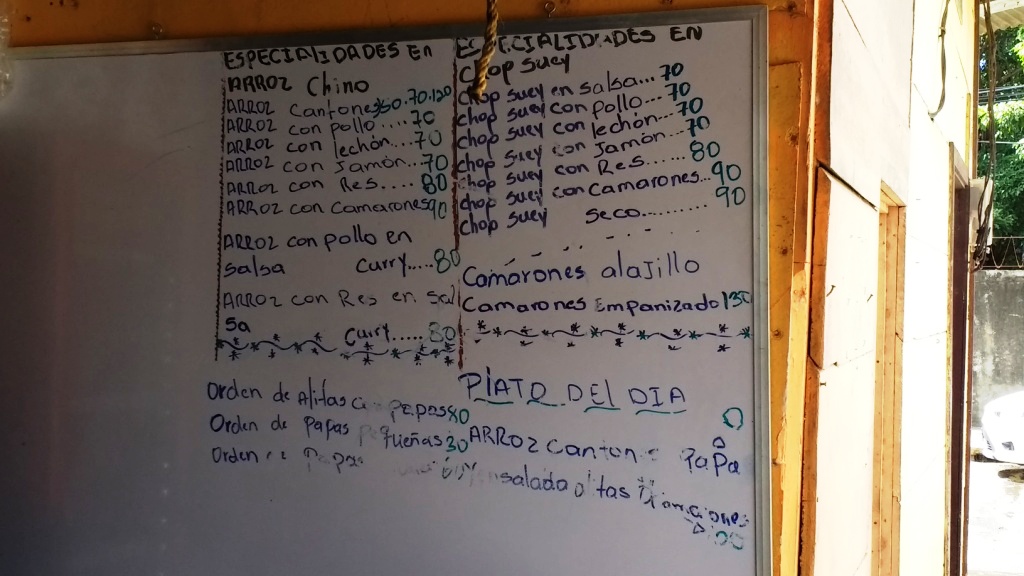 ESPECIALIDADES En
ARROZ Chino
ARROZ Cantones 50.70.120
ARROZ con pollo....70
ARROZ con lechón...70
ARROZ con Jamón...70
ARROZ con Res.....80
ARROZ con Camarones 90
ARROZ con pollo en
salsa Curry.....80
ARROZ con Res en Sal
sa Curry.....80
Orden de Alitas papas 80
Orden de Papas Pequeñas 30
Orden Papas
ESPECIALIDADES EN
Chop Suey
Chop suey en salsa...70
Chop suey con pollo...70
Chop suey con lechón...70
Chop suey con Jamón...70
Chop suey con Res......80
Chop suey con Camarones...90
Chop suey Seco..........90
Camarones alajillo
Camarones Empanizado 130
PLATO DEL DIA
ARROZ Canton PaPa
ensalada